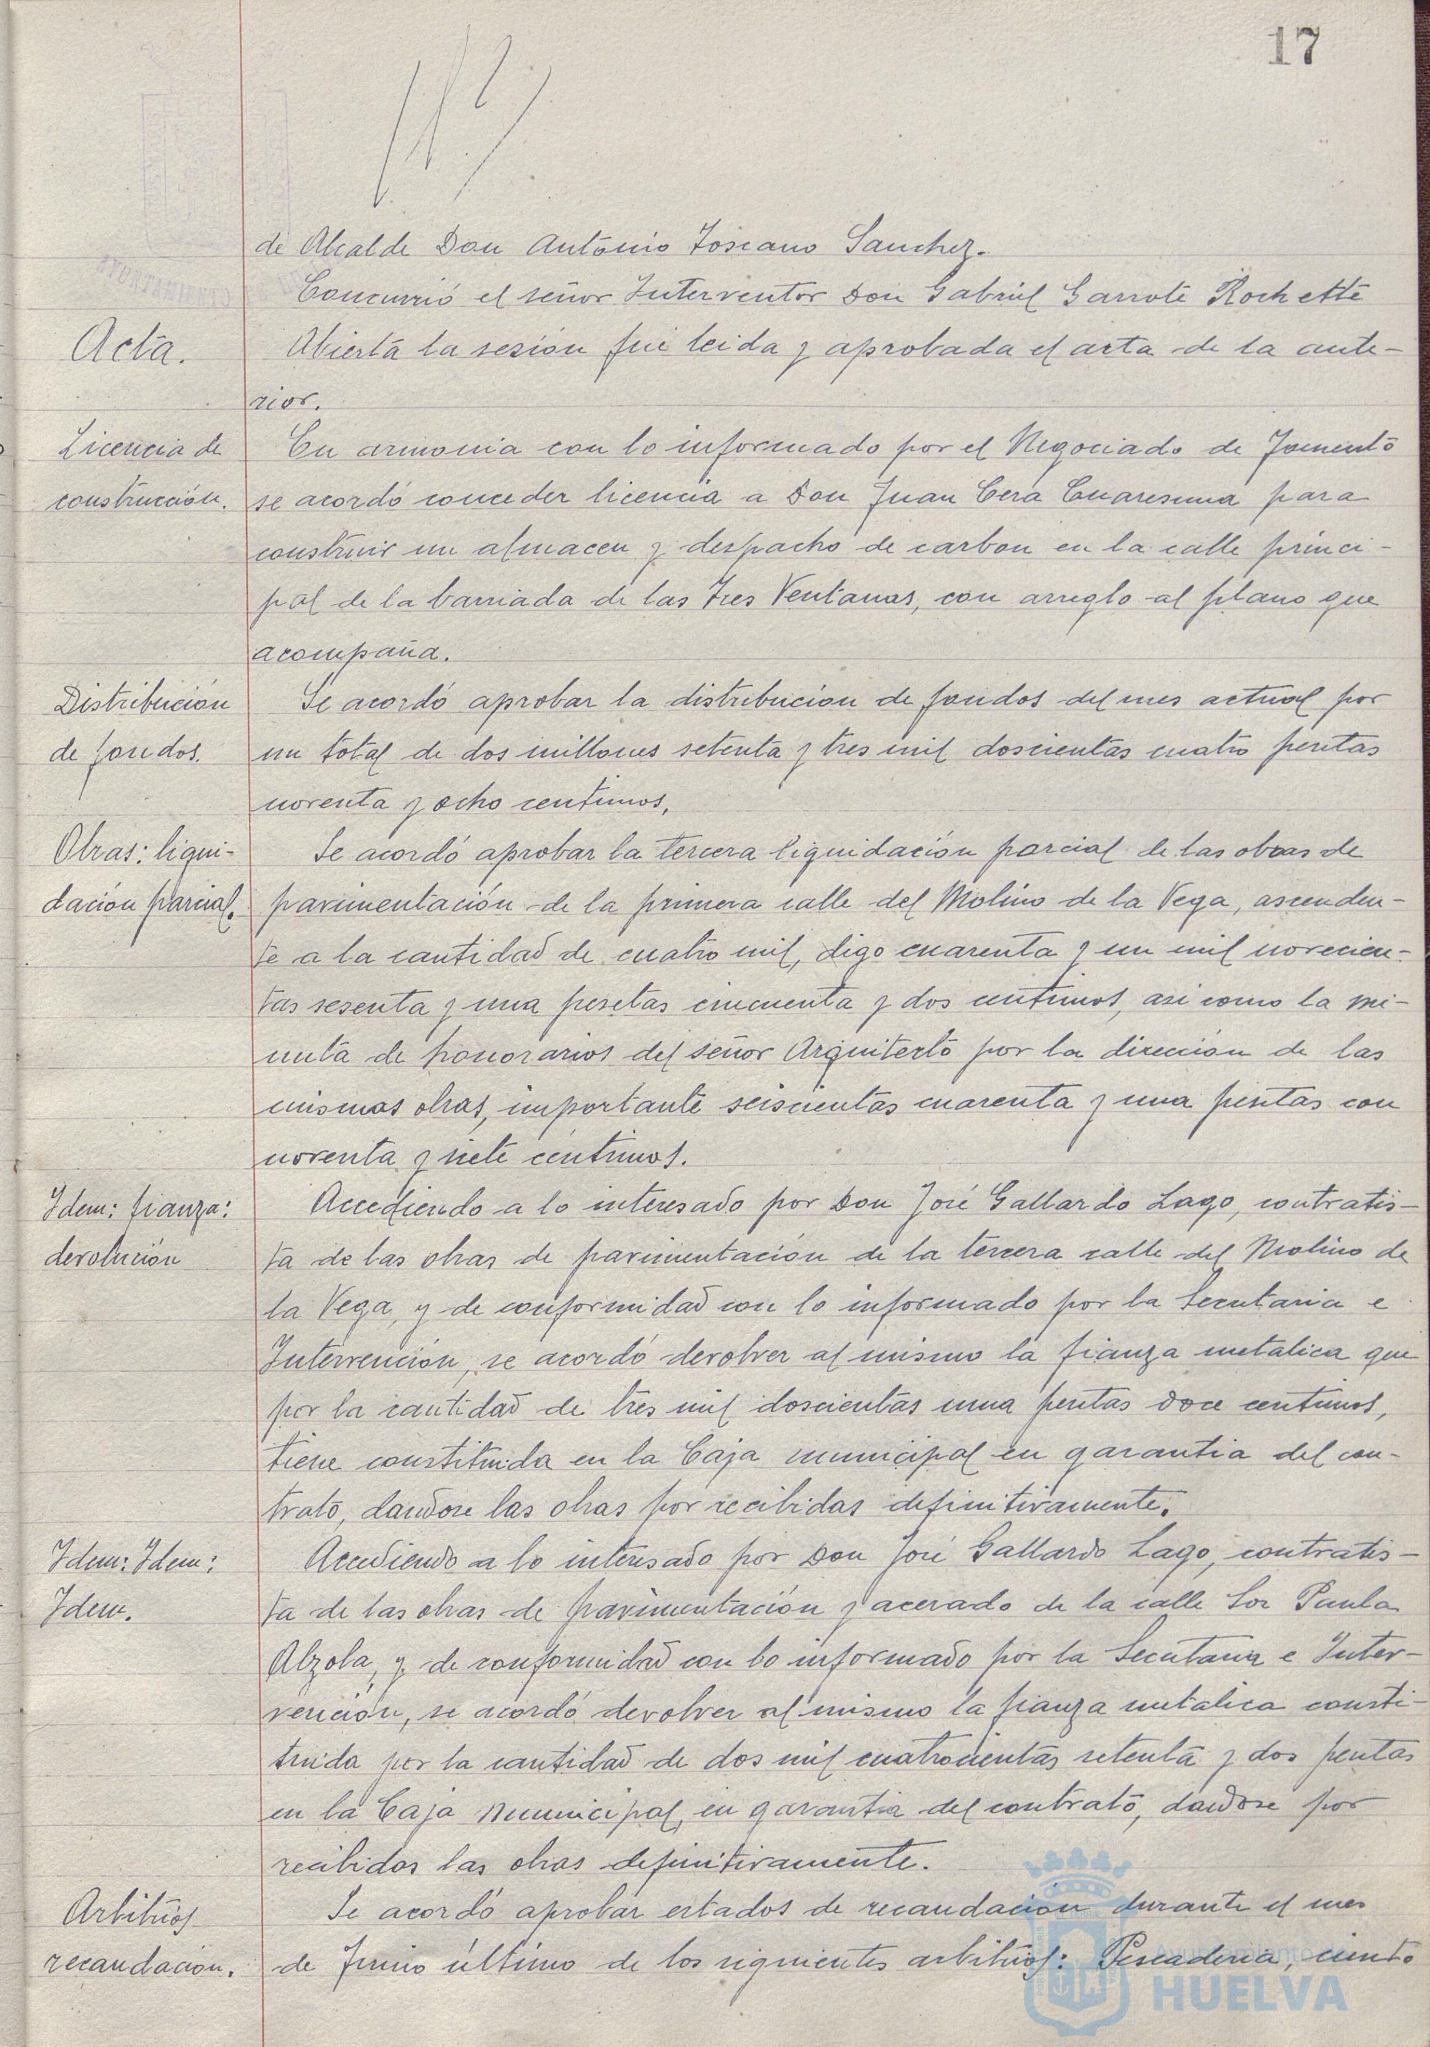 17
de Alcalde Don Antonio Toscano Sanchez.
Concurrió el señor Interventor Don Gabriel Garrote Rochette
Acta.
Abierta la sesión fué leida y aprobada el acta de la ante-
rior.
Licencia de
construcción.
En armonia con lo informado por el Negociado de Fomento
se acordó conceder licencia a Don Juan Cera Cuaresma para
construir un almacen y despacho de carbon en la calle princi-
pal de la barriada de las Tres Ventanas, con arreglo al plano que
acompaña.
Distribución
de fondos.
Se acordó aprobar la distribucion de fondos del mes actual por
un total de dos millones setenta y tres mil doscientas cuatro pesetas
noventa y ocho centimos.
Obras: liqui-
dación parcial.
Se acordó aprobar la tercera liquidación parcial de las obras de
pavimentación de la primera calle del Molino de la Vega, ascenden-
te a la cantidad de cuatro mil, digo cuarenta y un mil novecien-
tas sesenta y una pesetas cincuenta y dos centimos, asi como la mi-
nuta de honorarios del señor Arquitecto por la direccion de las
mismas obras, importante seiscientas cuarenta y una pesetas con
noventa y siete céntimos.
Idem: fianza:
devolución
Accediendo a lo interesado por Don José Gallardo Lago, contratis-
ta de las obras de pavimentación de la tercera calle del Molino de
la Vega, y de conformidad con lo informado por la Secretaria e
Intervención, se acordó devolver al mismo la fianza metalica que
por la cantidad de tres mil doscientas una pesetas doce centimos,
tiene constituida en la Caja municipal en garantia del con-
trato, dandose las obras por recibidas definitivamente.
Idem: Idem:
Idem.
Accediendo a lo interesado por Don José Gallardo Lago, contratis-
ta de las obras de pavimentación y acerado de la calle Sor Paula
Alzola, y de conformidad con lo informado por la Secretaria e Inter-
vención, se acordó devolver al mismo la fianza metalica consti-
tuida por la cantidad de dos mil cuatrocientas setenta y dos pesetas
en la Caja Municipal, en garantia del contrato, dandose por
recibidas las obras definitivamente.
Arbitrios
recaudación.
Se acordó aprobar estados de recaudación durante el mes
de Junio último de los siguientes arbitrios: Pescaderia, ciento
Ayuntamiento de
HUELVA